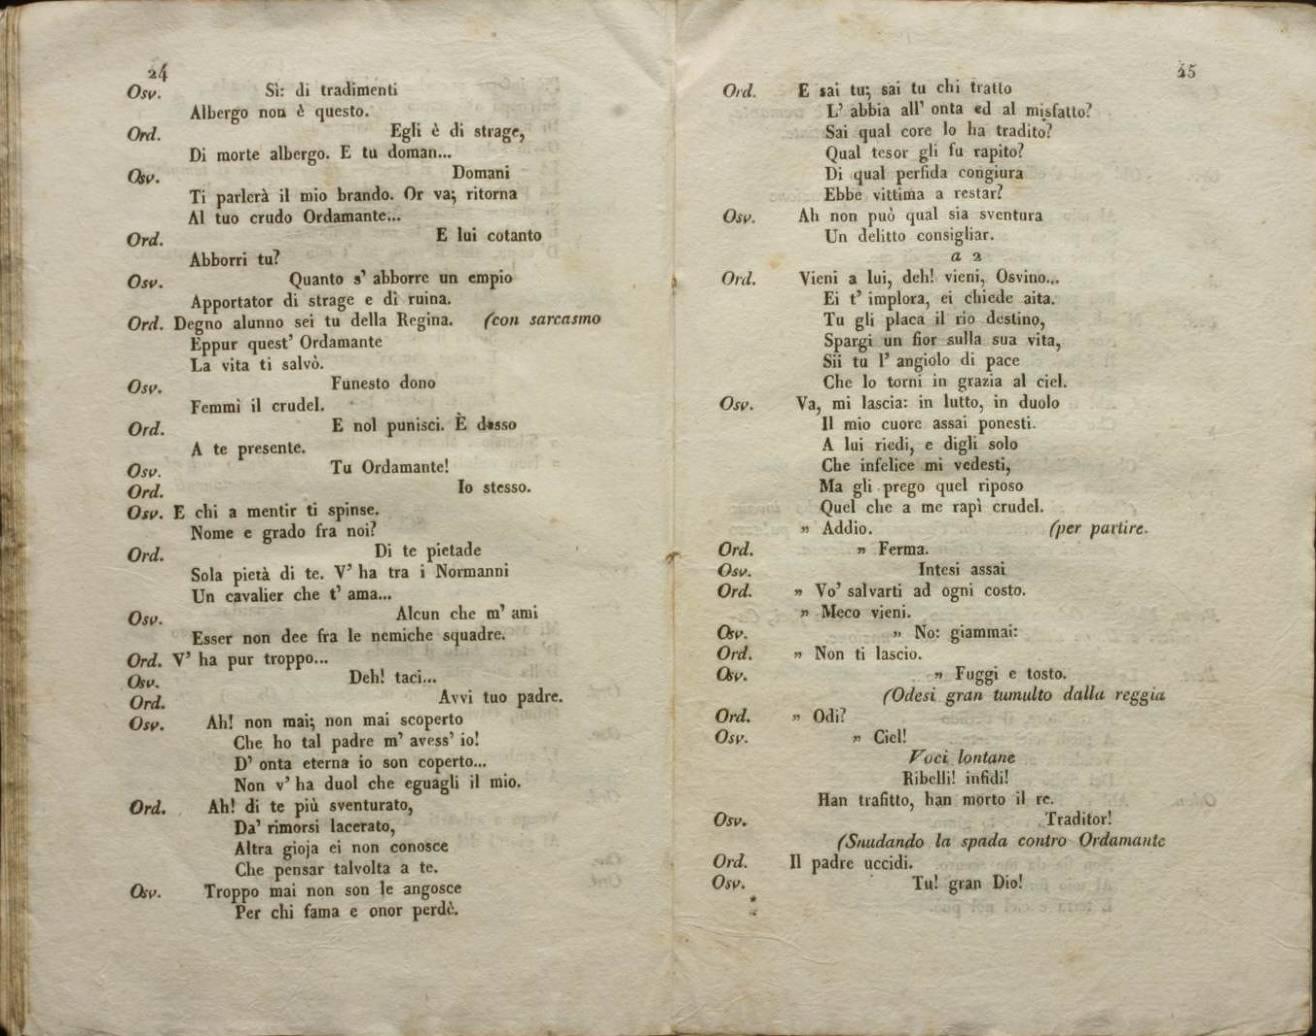 24
Osv. Sì: di tradimenti
Albergo non è questo.
Ord. Egli è di strage,
Di morte albergo. E tu doman...
Osv. Domani
Ti parlerà il mio brando. Or va; ritorna
Al tuo crudo Ordamante...
Ord. E lui cotanto
Abborri tu?
Osv. Quanto s' abborre un empio
Apportator di strage e di ruina.
Ord. Degno alunno sei tu della Regina. (con sarcasmo
Eppur quest' Ordamante
La vita ti salvò.
Osv. Funesto dono
Femmi il crudel.
Ord. E nol punisci. È desso
A te presente.
Osv. Tu Ordamante!
Ord. Io stesso.
Osv. E chi a mentir ti spinse.
Nome e grado fra noi?
Ord. Di te pietade
Sola pietà di te. V' ha tra i Normanni
Un cavalier che t' ama...
Osv. Alcun che m' ami
Esser non dee fra le nemiche squadre.
Ord. V' ha pur troppo...
Osv. Deh! taci...
Ord. Avvi tuo padre.
Osv. Ah! non mai; non mai scoperto
Che ho tal padre m' avess' io!
D' onta eterna io son coperto...
Non v' ha duol che eguagli il mio.
Ord. Ah! di te più sventurato,
Da' rimorsi lacerato,
Altra gioja ei non conosce
Che pensar talvolta a te.
Osv. Troppo mai non son le angosce
Per chi fama e onor perdè.
25
Ord. E sai tu; sai tu chi tratto
L' abbia all' onta ed al misfatto?
Sai qual core lo ha tradito?
Qual tesor gli fu rapito?
Di qual perfida congiura
Ebbe vittima a restar?
Osv. Ah non può qual sia sventura
Un delitto consigliar.
a 2
Ord. Vieni a lui, deh! vieni, Osvino...
Ei t' implora, ei chiede aita.
Tu gli placa il rio destino,
Spargi un fior sulla sua vita,
Sii tu l' angiolo di pace
Che lo torni in grazia al ciel.
Osv. Va, mi lascia: in lutto, in duolo
Il mio cuore assai ponesti.
A lui riedi, e digli solo
Che infelice mi vedesti,
Ma gli prego quel riposo
Quel che a me rapì crudel.
" Addio. (per partire.
Ord. " Ferma.
Osv. Intesi assai
Ord. " Vo' salvarti ad ogni costo.
" Meco vieni.
Osv. " No: giammai:
Ord. " Non ti lascio.
Osv. " Fuggi e tosto.
(Odesi gran tumulto dalla reggia
Ord. " Odi?
Osv. " Ciel!
Voci lontane
Ribelli! infidi!
Han trafitto, han morto il re.
Osv. Traditor!
(Snudando la spada contro Ordamante
Ord. Il padre uccidi.
Osv. Tu! gran Dio!